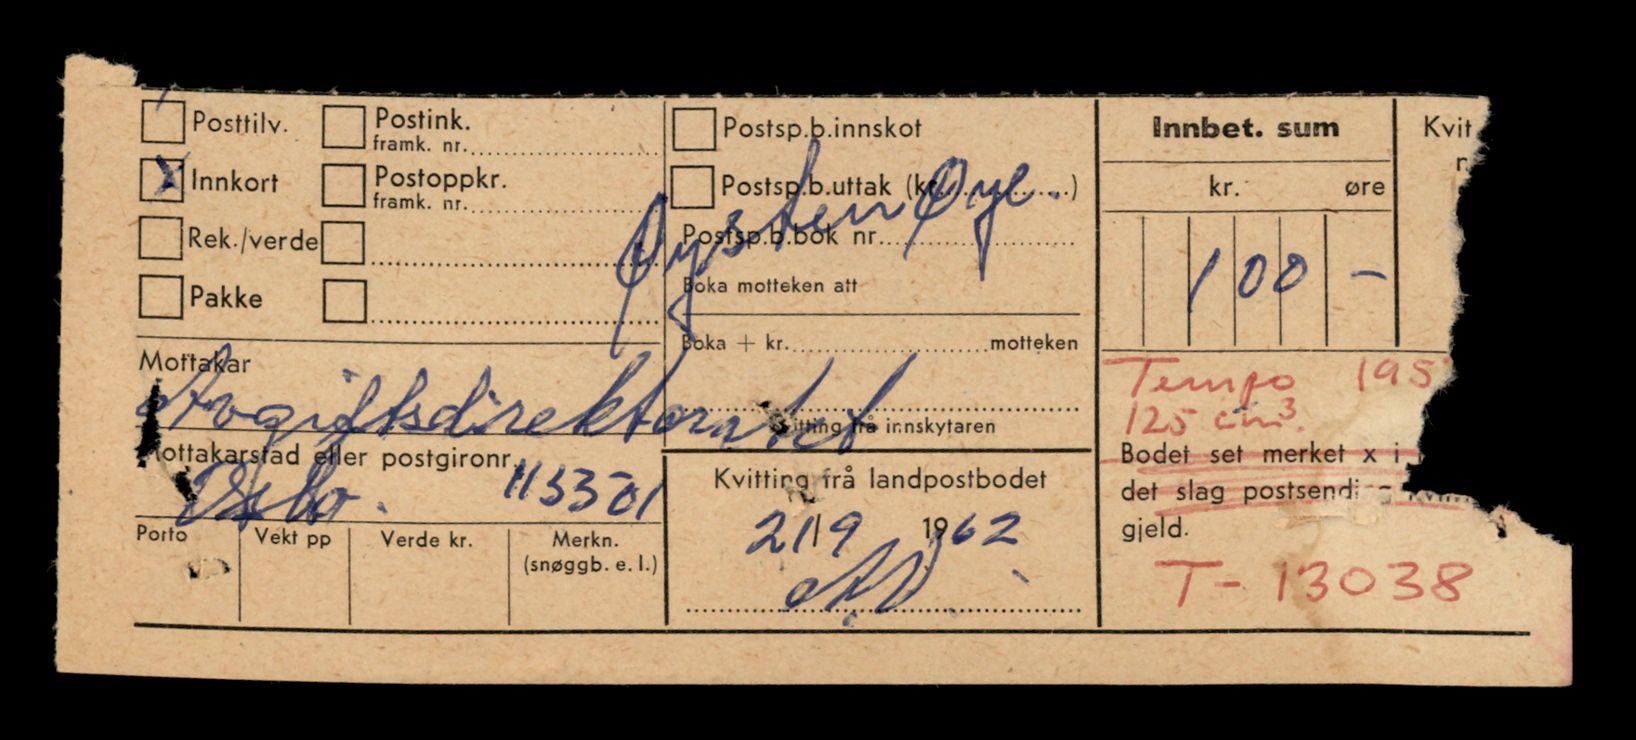 Posttilv.
Postink.
framk. nr.
x Innkort
Postoppkr.
framk. nr.
Rek./verde
Pakke
Postsp.b.innskot
Postsp.b.uttak (kr. )
Øysten Øye.
Postsp.b.bok nr.
Boka motteken att
Boka + kr. motteken
Kvitting frå innskytaren
Mottakar
Avgiftsdirektoratet
Mottakarstad eller postgironr.
Oslo. 113301
Porto
Vekt pp
Verde kr.
Merkn.
(snøggb. e. l.)
Kvitting frå landpostbodet
21/9 1962
Innbet. sum
kr. øre
100 -
Kvit
Tempo 195
125 cm3.
Bodet set merket x i
det slag postsending kvitt
gjeld.
T-13038